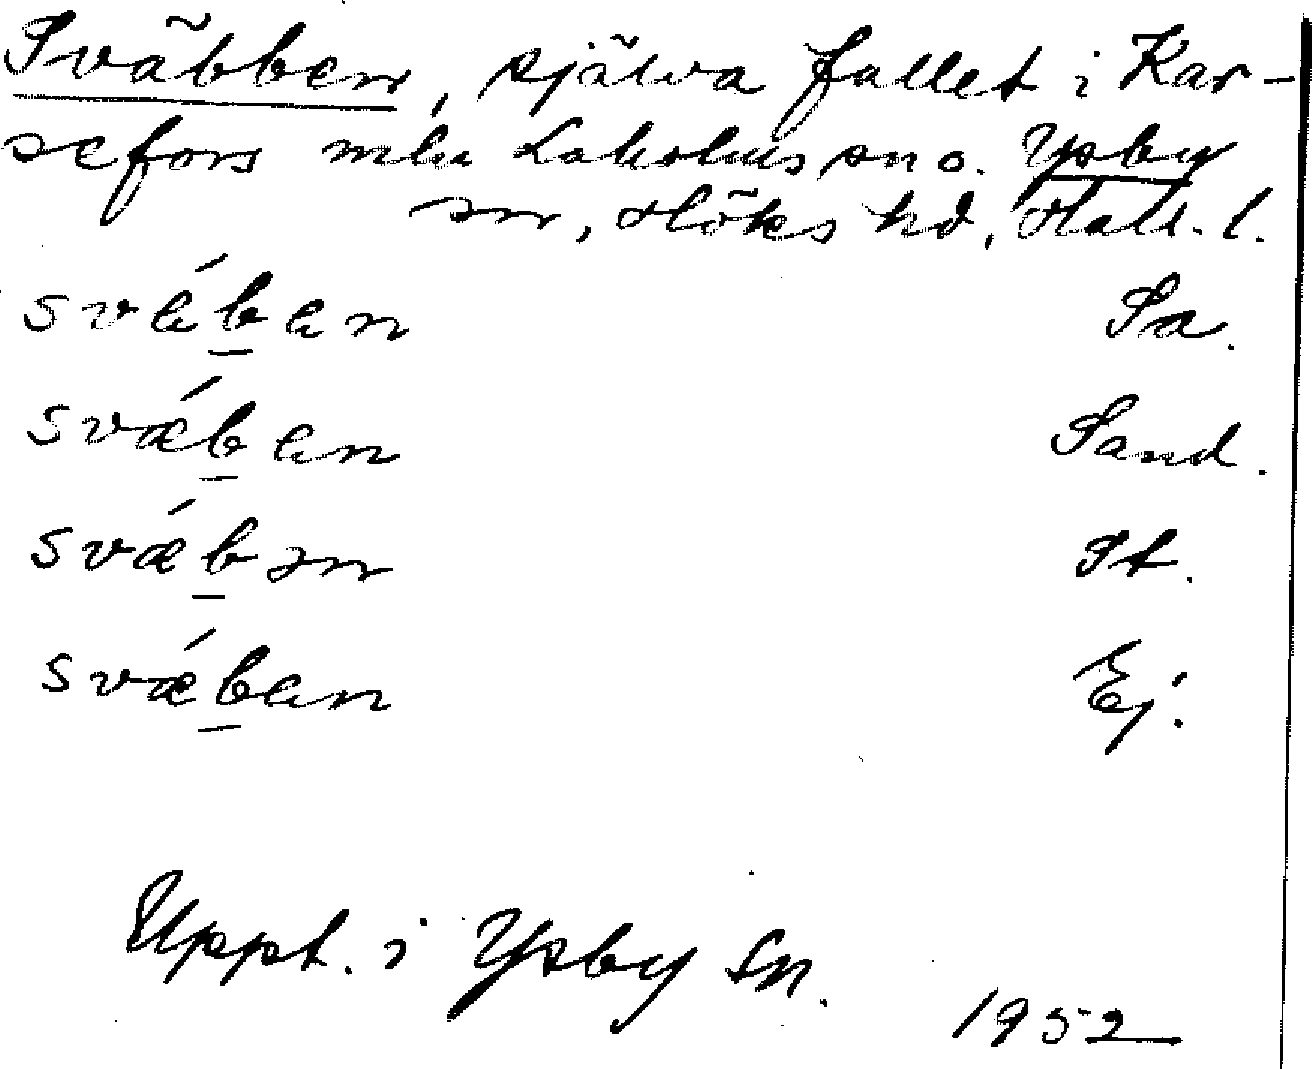 Sväbben, själva fallet i Kar-
sefors mln Laholms sn o. Ysby
sn, Höks hd, Hall. l.
svä́b̲en Sa.
svǽb̲en Sand.
svǽb̲ən St.
svǽb̲en Ej.
Uppt. i Ysby Sn.
1952